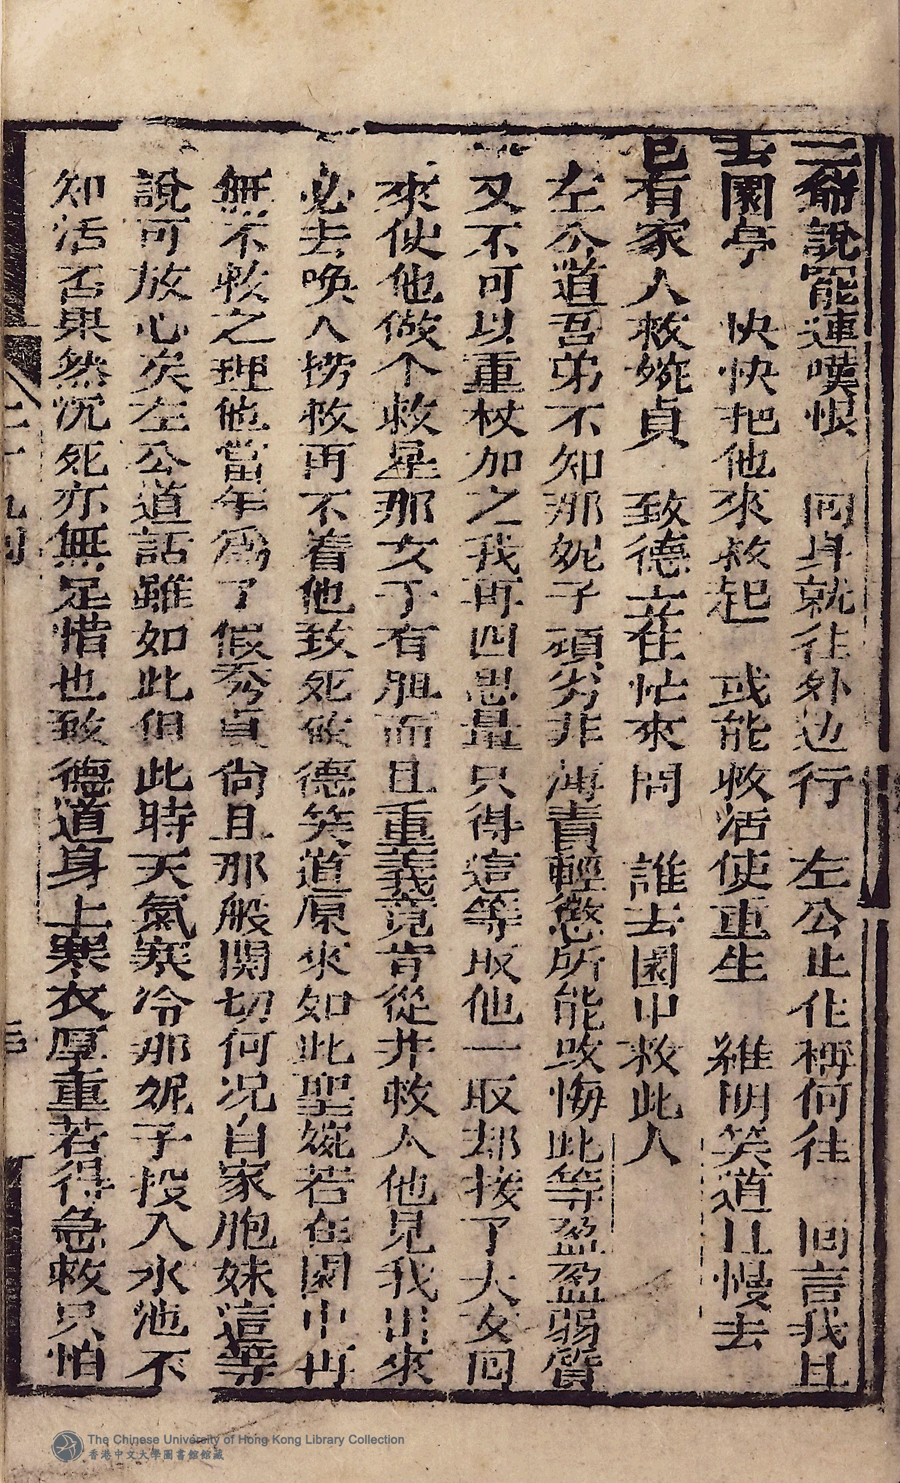 三爺說罷連嘆恨　同身就往外边行　左公止住称何往　回言我且
去園亭　快快把他來救起　或能救活使重生　維明笑道且慢去
已有家人救婉貞　致德立住忙來問　誰去園中救此人
左公道吾弟不知那妮子頑劣非海責輕懲所能改悔此等盈盈弱質
又不可以重杖加之我再四思量只得這等取他一取却接了大女囘
來使他做个救星那女子有胆而且重義竟肯從井救人他見我出來
必去喚人撈救再不着他致死致德笑道原來如此聖婉若在園中再
無不救之理他當年為了假秀貞尙且那般関切何况自家胞妹這等
說可放心矣左公道話雖如此但此時天氣寒冷那妮子投入水池不
知活否果然沉死亦無足惜也致德道身上寒衣厚重若得急救只怕
二十九囘
The Chinese University of Hong Kong Library Collection
香港中文大學圖書館館藏